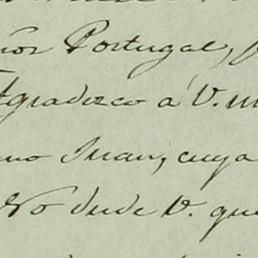 ñor Portugal,
Agradezco á V. m
no Juan, cuya
No dude V. que